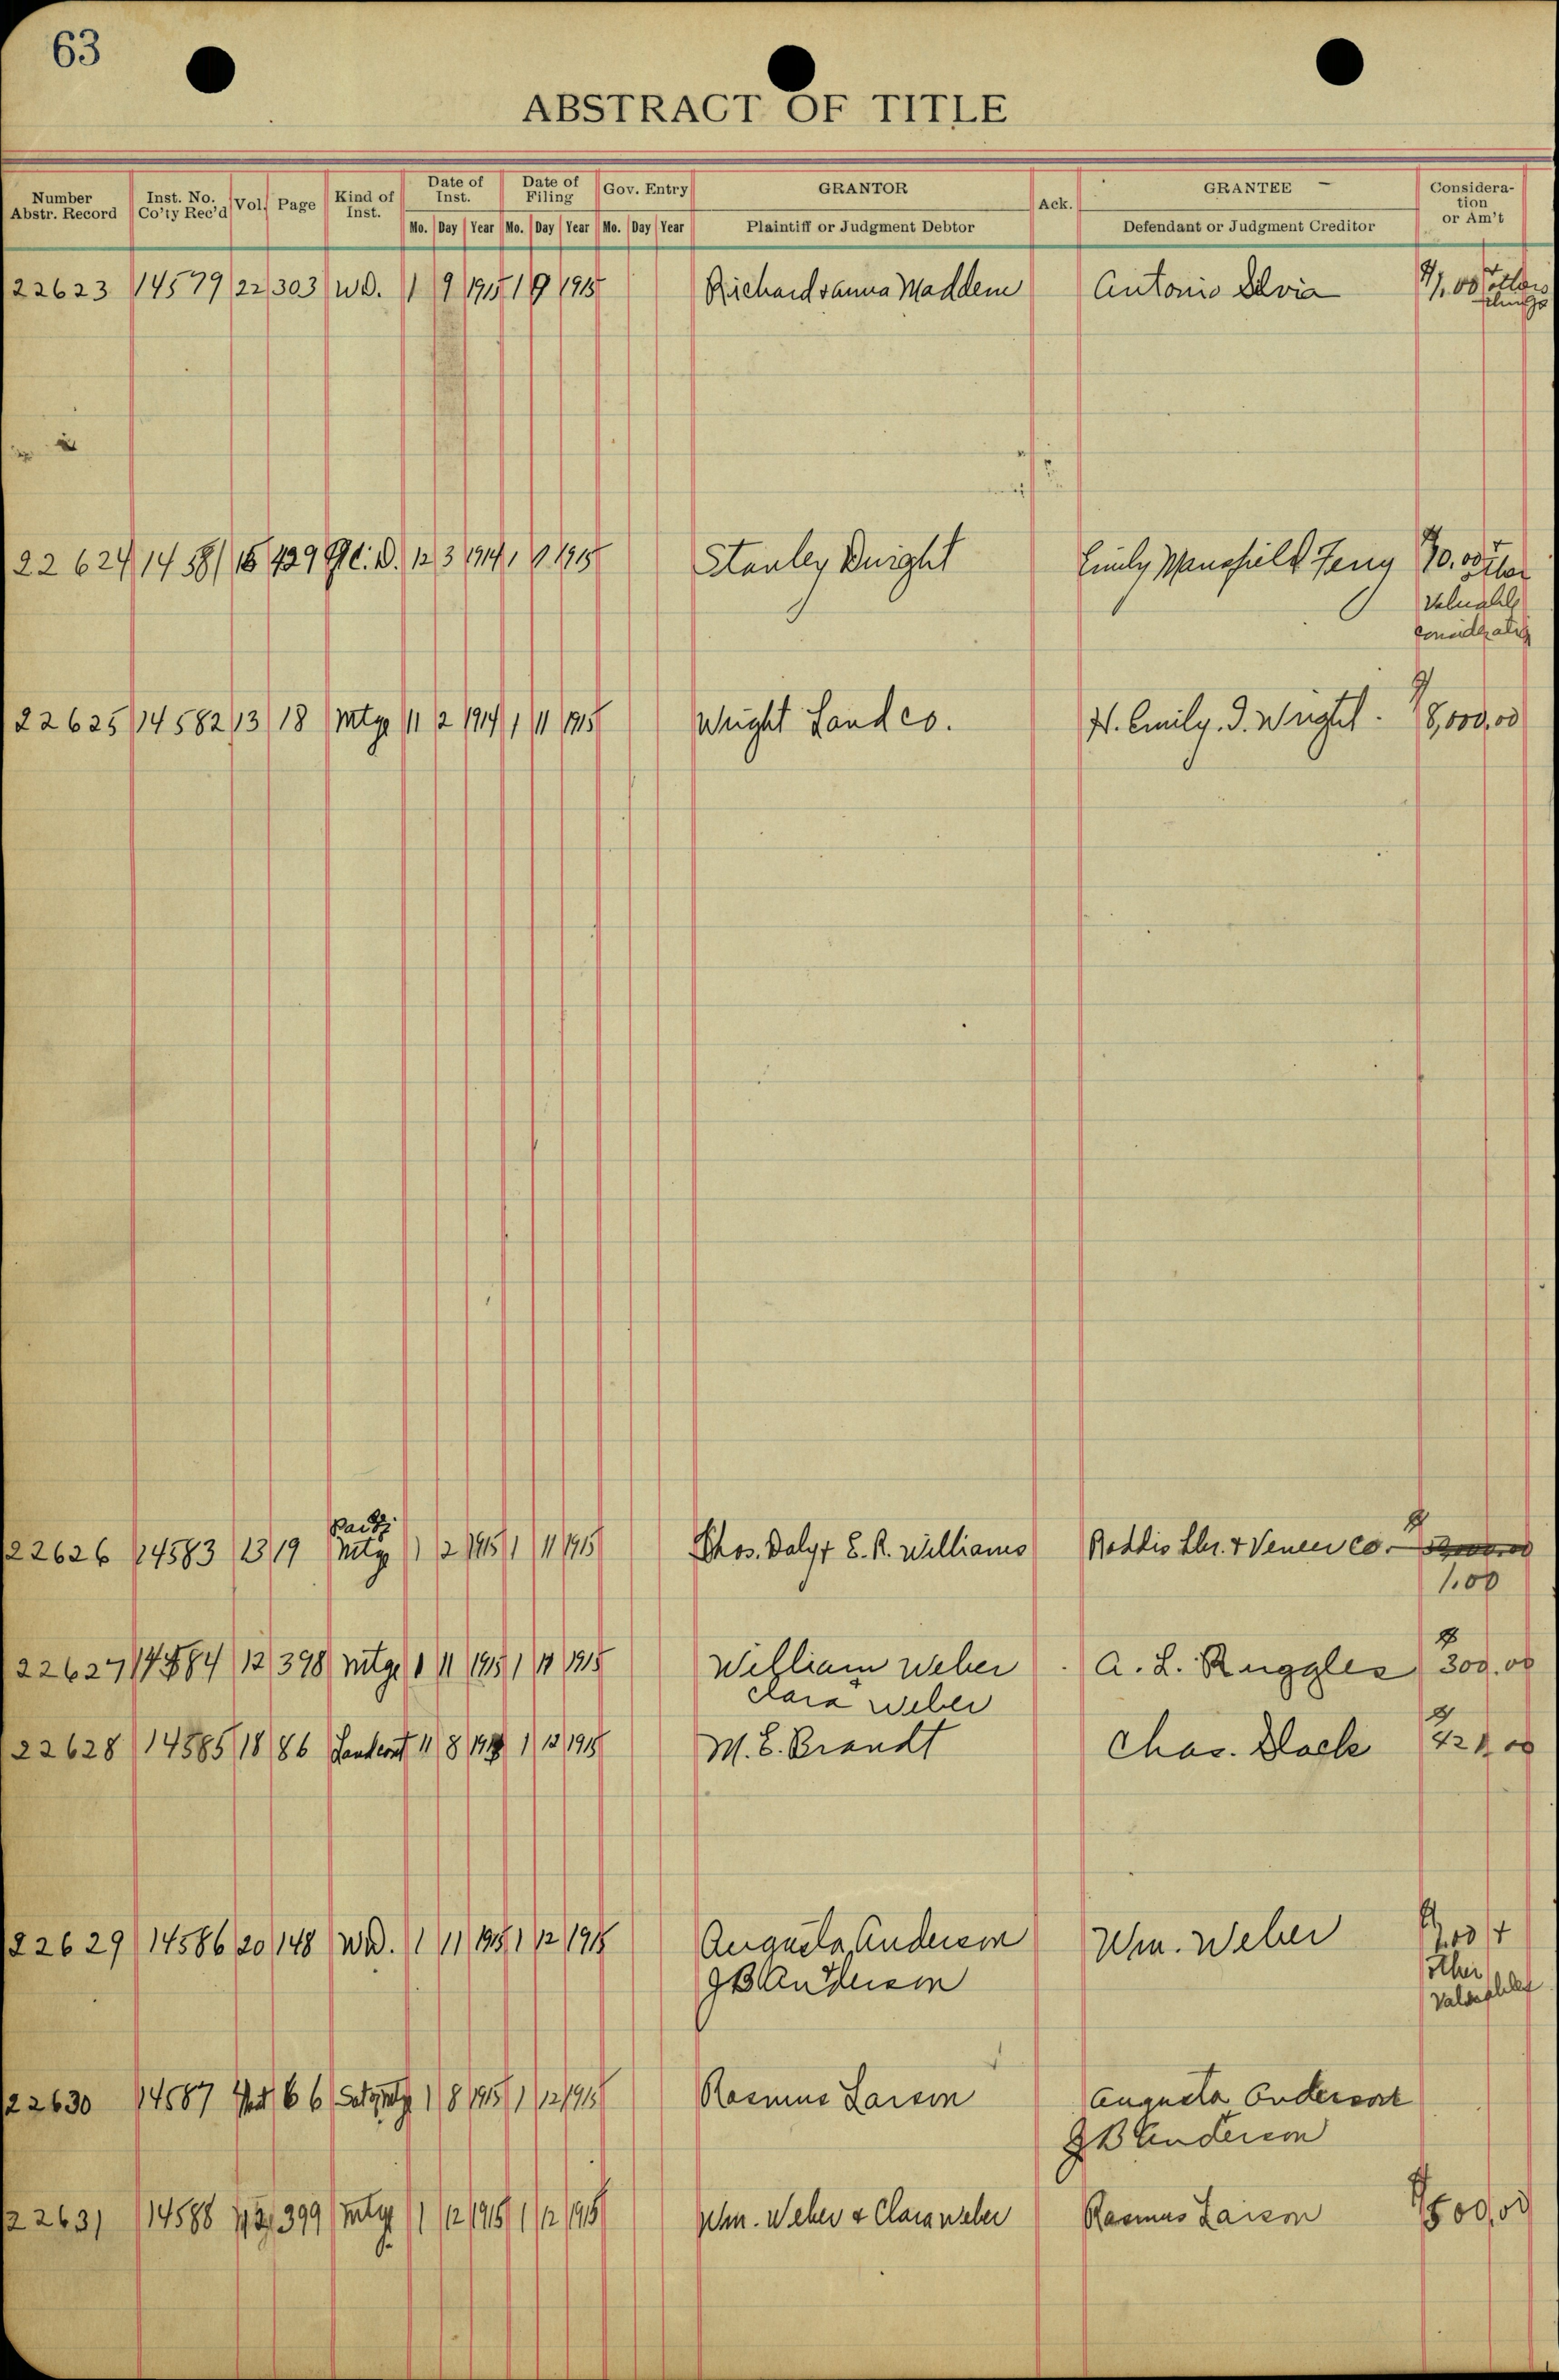 63
ABSTRACT OF TITLE
Number Abstr. Record Inst. No. Co'ty Rec'd Vol. Page Kind of Inst. Date of Inst. Date of Filing Gov. Entry GRANTOR Ack. GRANTEE Considera-tion or Am't
Mo. Day Year Mo. Day Year Mo. Day Year Plaintiff or Judgment Debtor Defendant or Judgment Creditor
22623 14579 22 303 W.D. 1 9 1915 1 9 1915 Richard & Anna Madden Antonio $1.00 +
22624 14581 429 Q.C.D. 12 3 1914 1 1915 Stanley Emily Mansfield
Valuable
consideration
22625 14582 13 18 Mtge 11 2 1914 1 11 1915 Wright Land Co. Emily. I. Wright. $8,000.00
22626 14583 13 19 Mtge 1 2 1915 1 11 1915 Thos. Daly + E. R. Williams Roddis Lbr. & Veneer Co. $
1.00
22627 14584 12 398 Mtge 1 11 1915 1 11 1915 William Weber A. L. Ruggles $300.00
Clara Weber
22628 14585 18 86 11 8 1 12 1915 M. E. Brandt Chas.
22629 14586 20 148 W.D. 1 11 1915 1 12 1915 Augusta Anderson Wm. Weber $1.00 +
other
J B Anderson
22630 14587 66 1 8 1915 1 12 1915 Rasmus Larson Augusta Anderson
J B Anderson
22631 14588 12 399 Mtge 1 12 1915 1 12 1915 Wm. Weber & Clara Weber Rasmus Larson